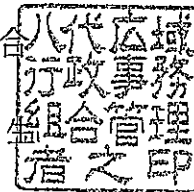 合
八代広域
行政事務
組合管理
者之印